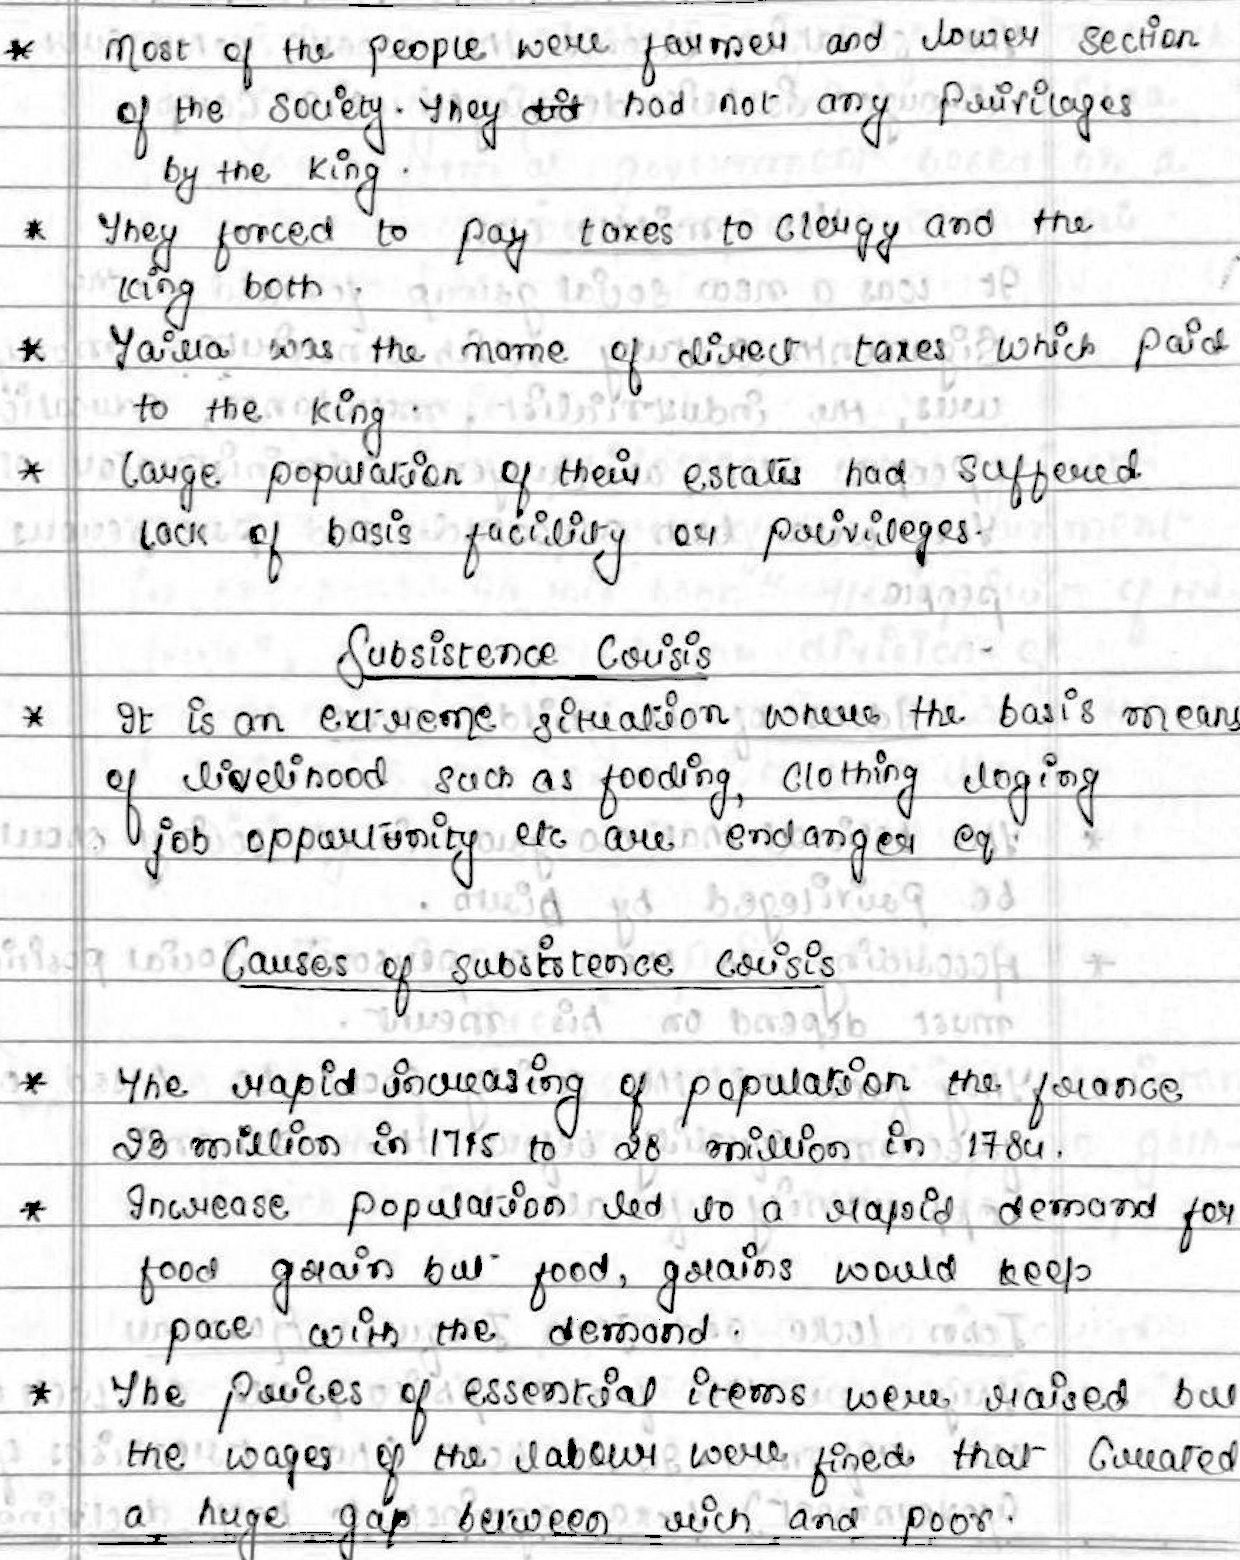 * Most of the people were farmer and lower section
of the society. They did had not any Privilages
by the King.
* They forced to pay taxes to Clergy and the
King both.
* Taila was the name of direct taxes which paid
to the King.
* Large population of their estates had suffered
lack of basis facility or privileges.
Subsistence Crisis
* It is an extreme situation where the basis means
of livelihood such as fooding, clothing loging
job opportunity etc are endanger eq.
Causes of subsistence crisis
* The rapid increasing of population the france
23 million in 1715 to 28 million in 1784.
* Increase population led to a rapid demand for
food grain but food, grains would keep
pace with the demand.
* The Prices of essential items were raised but
the wages of the labour were fined that Created
a huge gap between rich and poor.